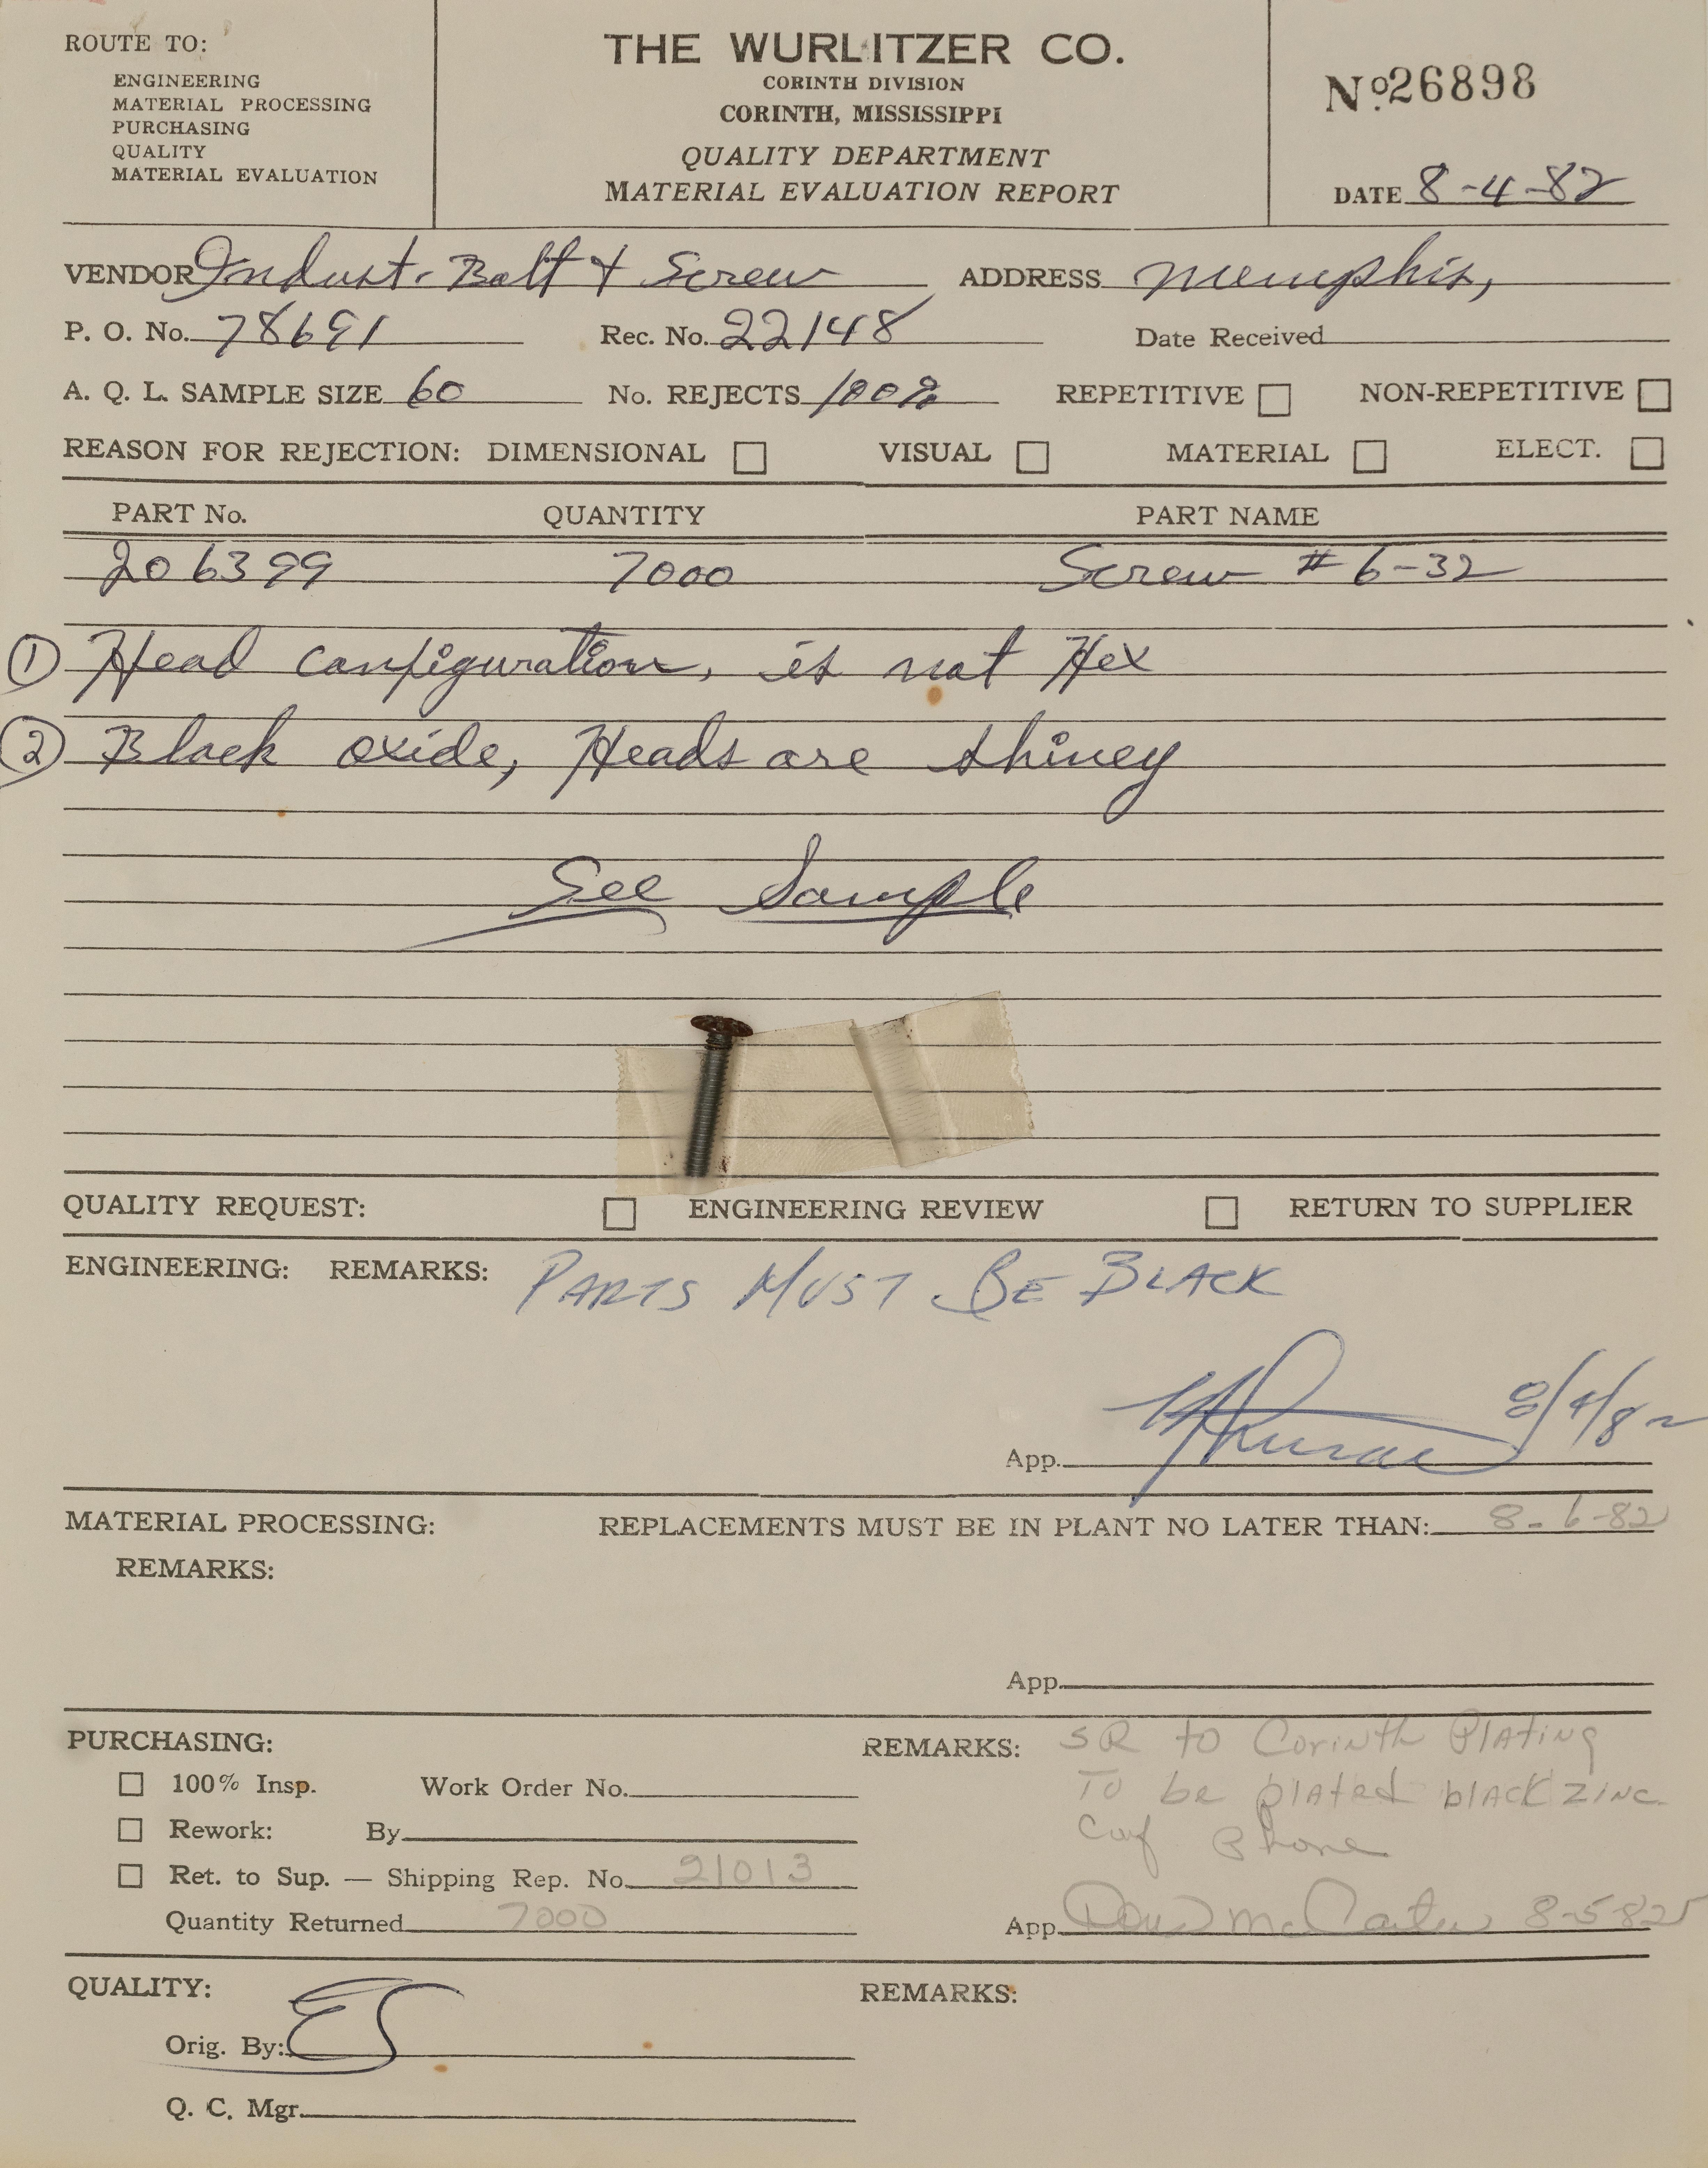 ROUTE TO:
ENGINEERING
MATERIAL PROCESSING
PURCHASING
QUALITY
MATERIAL EVALUATION
THE WURLITZER CO.
CORINTH DIVISION
CORINTH, MISSISSIPPI
QUALITY DEPARTMENT
MATERIAL EVALUATION REPORT
Nº 26898
DATE 8-4-82
VENDOR Indust. Bolt & Screw ADDRESS Memphis,
P. O. No. 78691 Rec. No. 22148 Date Received
A. Q. L. SAMPLE SIZE 60 No. REJECTS 100% REPETITIVE NON-REPETITIVE
REASON FOR REJECTION: DIMENSIONAL VISUAL MATERIAL ELECT.
PART No. QUANTITY PART NAME
206399 7000 Screw # 6-32
① Head configuration, is not Hex
② Black oxide, Heads are shiney
See Sample
QUALITY REQUEST: ENGINEERING REVIEW RETURN TO SUPPLIER
ENGINEERING: REMARKS: PARTS MUST BE BLACK
App. 8/4/82
MATERIAL PROCESSING: REPLACEMENTS MUST BE IN PLANT NO LATER THAN: 8-6-82
REMARKS:
App.
PURCHASING: REMARKS: SR to Corinth Plating
100% Insp. Work Order No. To be plated black zinc
Rework: By Phone
Ret. to Sup. — Shipping Rep. No. 21013
Quantity Returned 7000 App. McCarter 8-5-82
QUALITY: REMARKS:
Orig. By: ES
Q. C. Mgr.